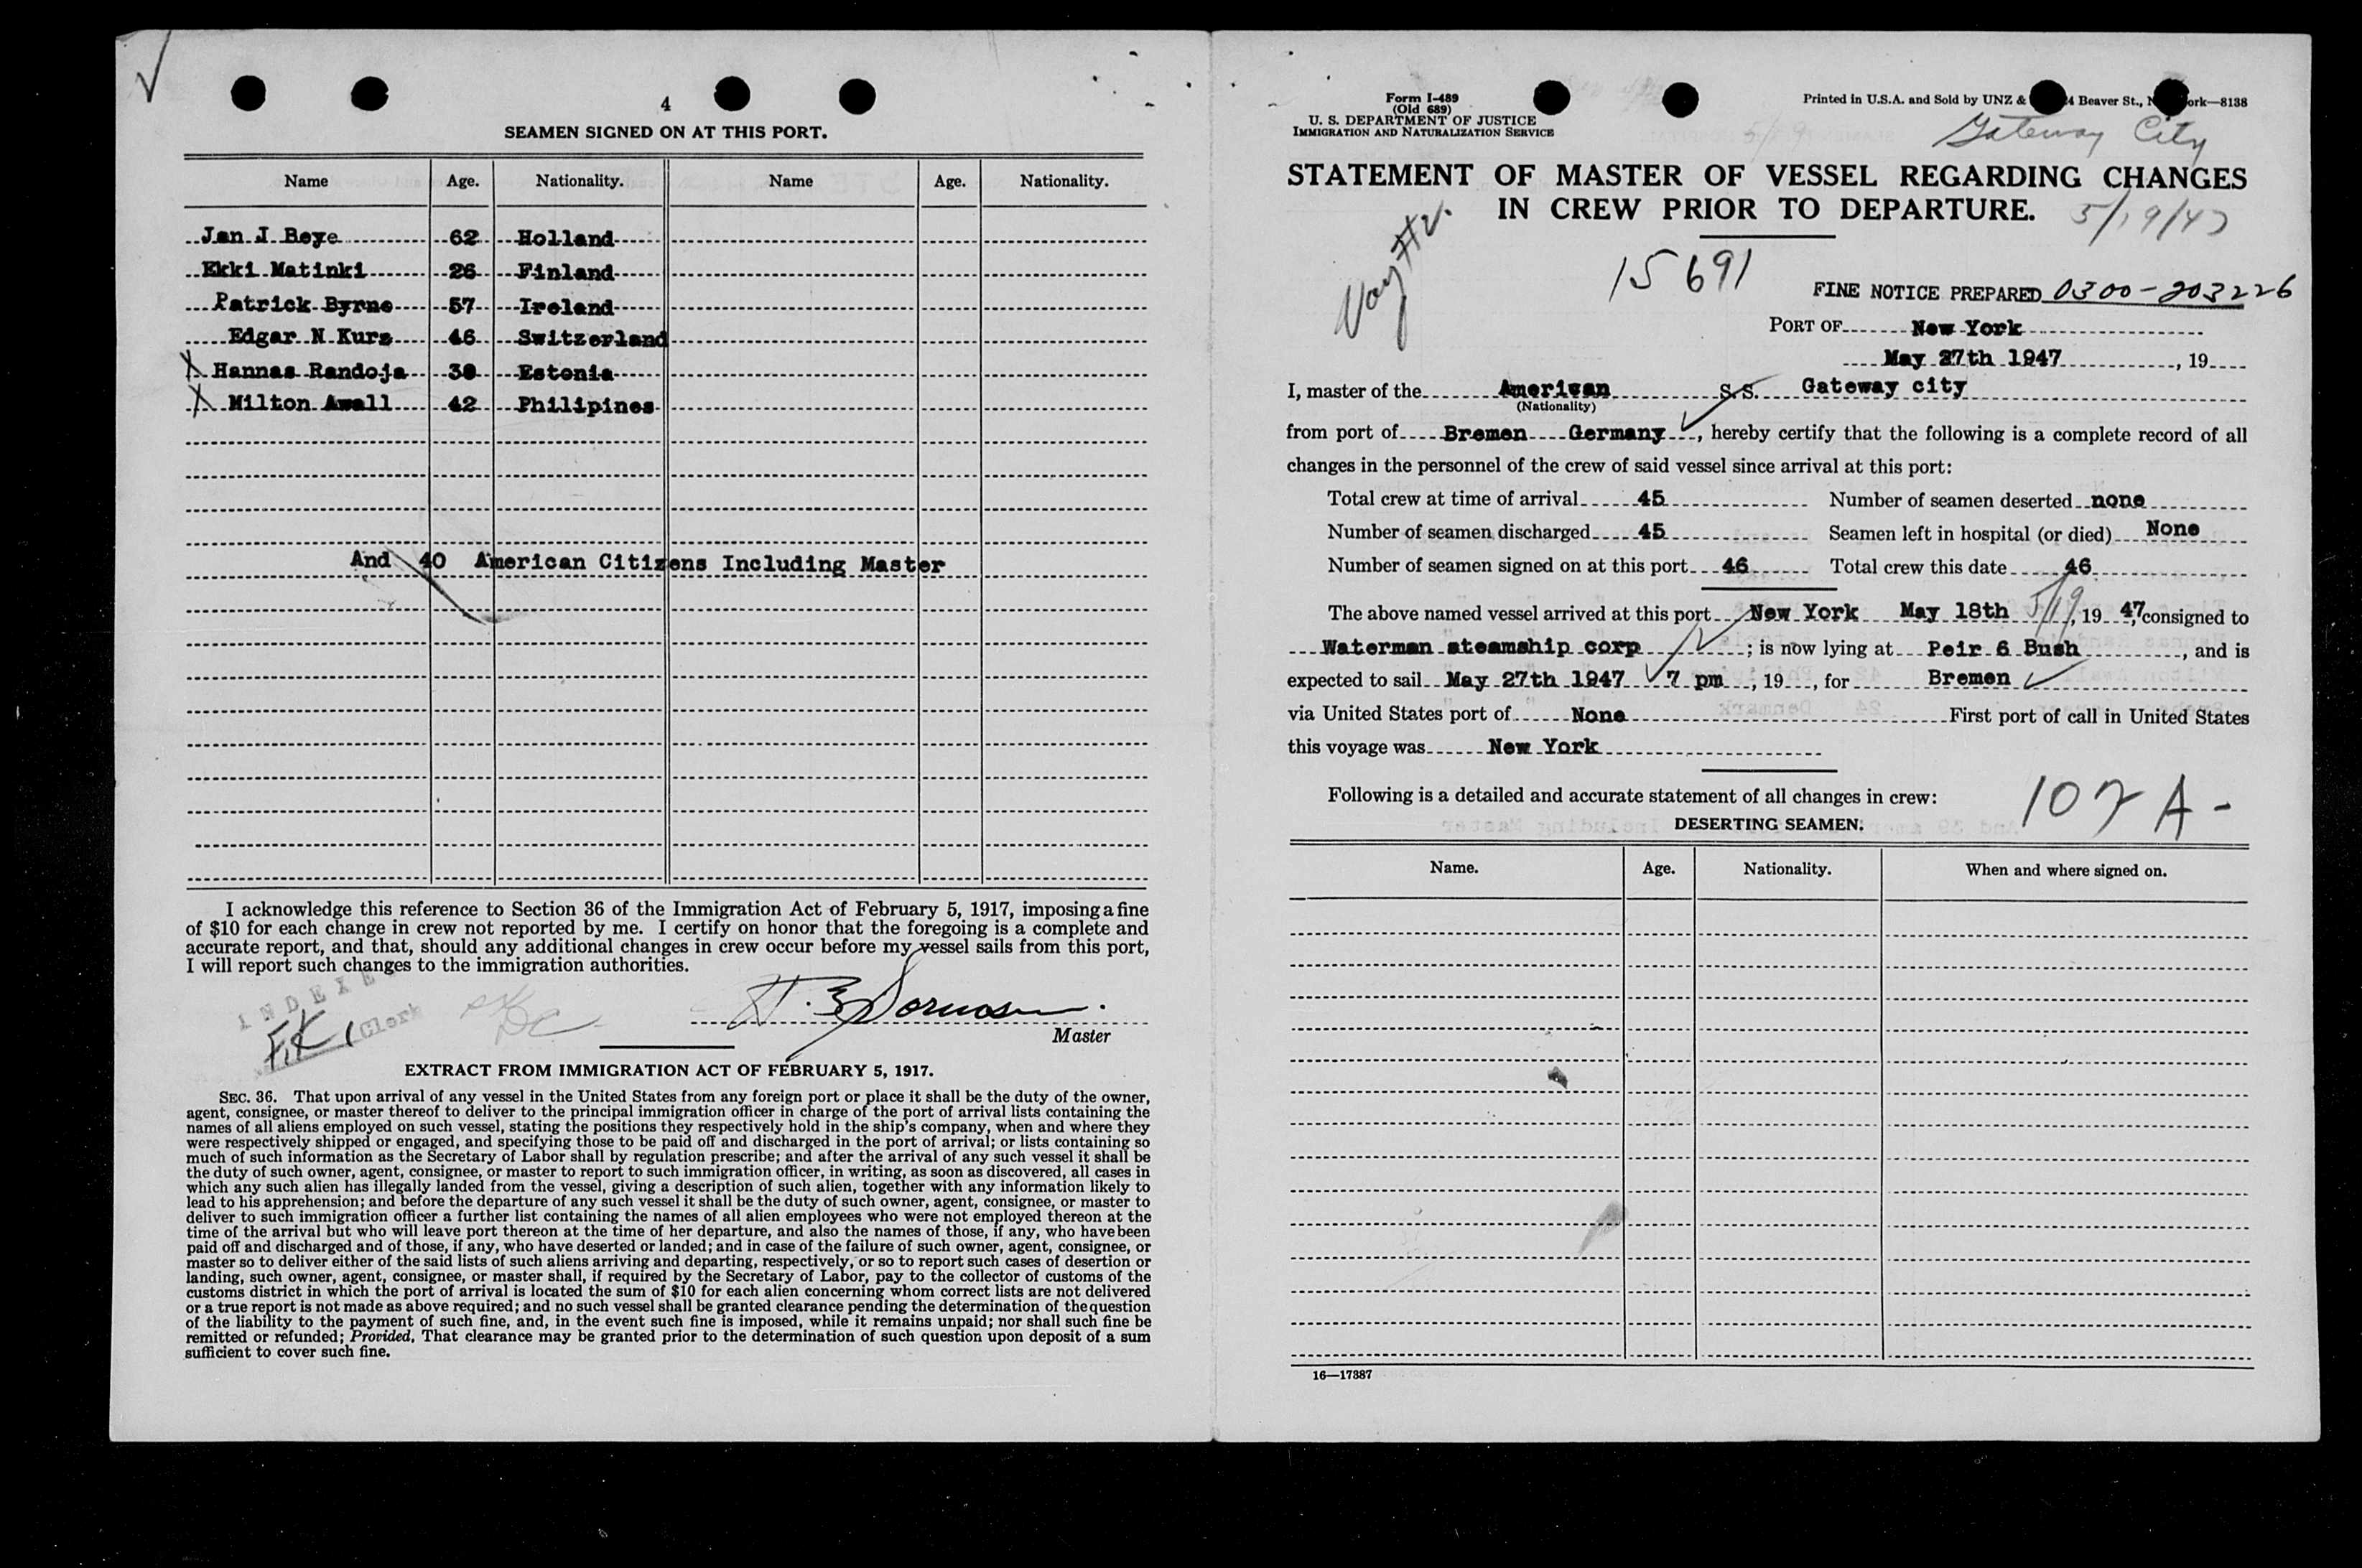 4
SEAMEN SIGNED ON AT THIS PORT.
Name Age. Nationality. Name Age. Nationality.
Jan J Beye 62 Holland
Ekki Matinki 26 Finland
Patrick Byrne 57 Ireland
Edgar N Kurz 46 Switzerland
X Hannas Randoja Estonia
X Milton Awall 42 Philipines
And 40 American Citizens Including Master
I acknowledge this reference to Section 36 of the Immigration Act of February 5, 1917, imposing a fine
of $10 for each change in crew not reported by me. I certify on honor that the foregoing is a complete and
accurate report, and that, should any additional changes in crew occur before my vessel sails from this port,
I will report such changes to the immigration authorities.
INDEXED
F.K. Clerk
Master
EXTRACT FROM IMMIGRATION ACT OF FEBRUARY 5, 1917.
SEC. 36. That upon arrival of any vessel in the United States from any foreign port or place it shall be the duty of the owner,
agent, consignee, or master thereof to deliver to the principal immigration officer in charge of the port of arrival lists containing the
names of all aliens employed on such vessel, stating the positions they respectively hold in the ship's company, when and where they
were respectively shipped or engaged, and specifying those to be paid off and discharged in the port of arrival; or lists containing so
much of such information as the Secretary of Labor shall by regulation prescribe; and after the arrival of any such vessel it shall be
the duty of such owner, agent, consignee, or master to report to such immigration officer, in writing, as soon as discovered, all cases in
which any such alien has illegally landed from the vessel, giving a description of such alien, together with any information likely to
lead to his apprehension; and before the departure of any such vessel it shall be the duty of such owner, agent, consignee, or master to
deliver to such immigration officer a further list containing the names of all alien employees who were not employed thereon at the
time of the arrival but who will leave port thereon at the time of her departure, and also the names of those, if any, who have been
paid off and discharged and of those, if any, who have deserted or landed; and in case of the failure of such owner, agent, consignee, or
master so to deliver either of the said lists of such aliens arriving and departing, respectively, or so to report such cases of desertion or
landing, such owner, agent, consignee, or master shall, if required by the Secretary of Labor, pay to the collector of customs of the
customs district in which the port of arrival is located the sum of $10 for each alien concerning whom correct lists are not delivered
or a true report is not made as above required; and no such vessel shall be granted clearance pending the determination of the question
of the liability to the payment of such fine, and, in the event such fine is imposed, while it remains unpaid; nor shall such fine be
remitted or refunded; Provided, That clearance may be granted prior to the determination of such question upon deposit of a sum
sufficient to cover such fine.
Form I-489
(Old 689)
U. S. DEPARTMENT OF JUSTICE
IMMIGRATION AND NATURALIZATION SERVICE
Printed in U.S.A. and Sold by UNZ & Beaver St., 8138
Gateway City
STATEMENT OF MASTER OF VESSEL REGARDING CHANGES
IN CREW PRIOR TO DEPARTURE.
5/19/47
Voy #2.
15691
FINE NOTICE PREPARED 0300-203226
PORT OF New York
May 27th 1947, 19
I, master of the American S.S. Gateway city
(Nationality)
from port of Bremen Germany, hereby certify that the following is a complete record of all
changes in the personnel of the crew of said vessel since arrival at this port:
Total crew at time of arrival 45 Number of seamen deserted none
Number of seamen discharged 45 Seamen left in hospital (or died) None
Number of seamen signed on at this port 46 Total crew this date 46
The above named vessel arrived at this port New York May 18th 5/19, 19 47, consigned to
Waterman steamship corp; is now lying at Peir 6 Bush, and is
expected to sail May 27th 1947 7 pm, 19, for Bremen
via United States port of None First port of call in United States
this voyage was New York
Following is a detailed and accurate statement of all changes in crew:
DESERTING SEAMEN.
A-
Name. Age. Nationality. When and where signed on.
16—17387